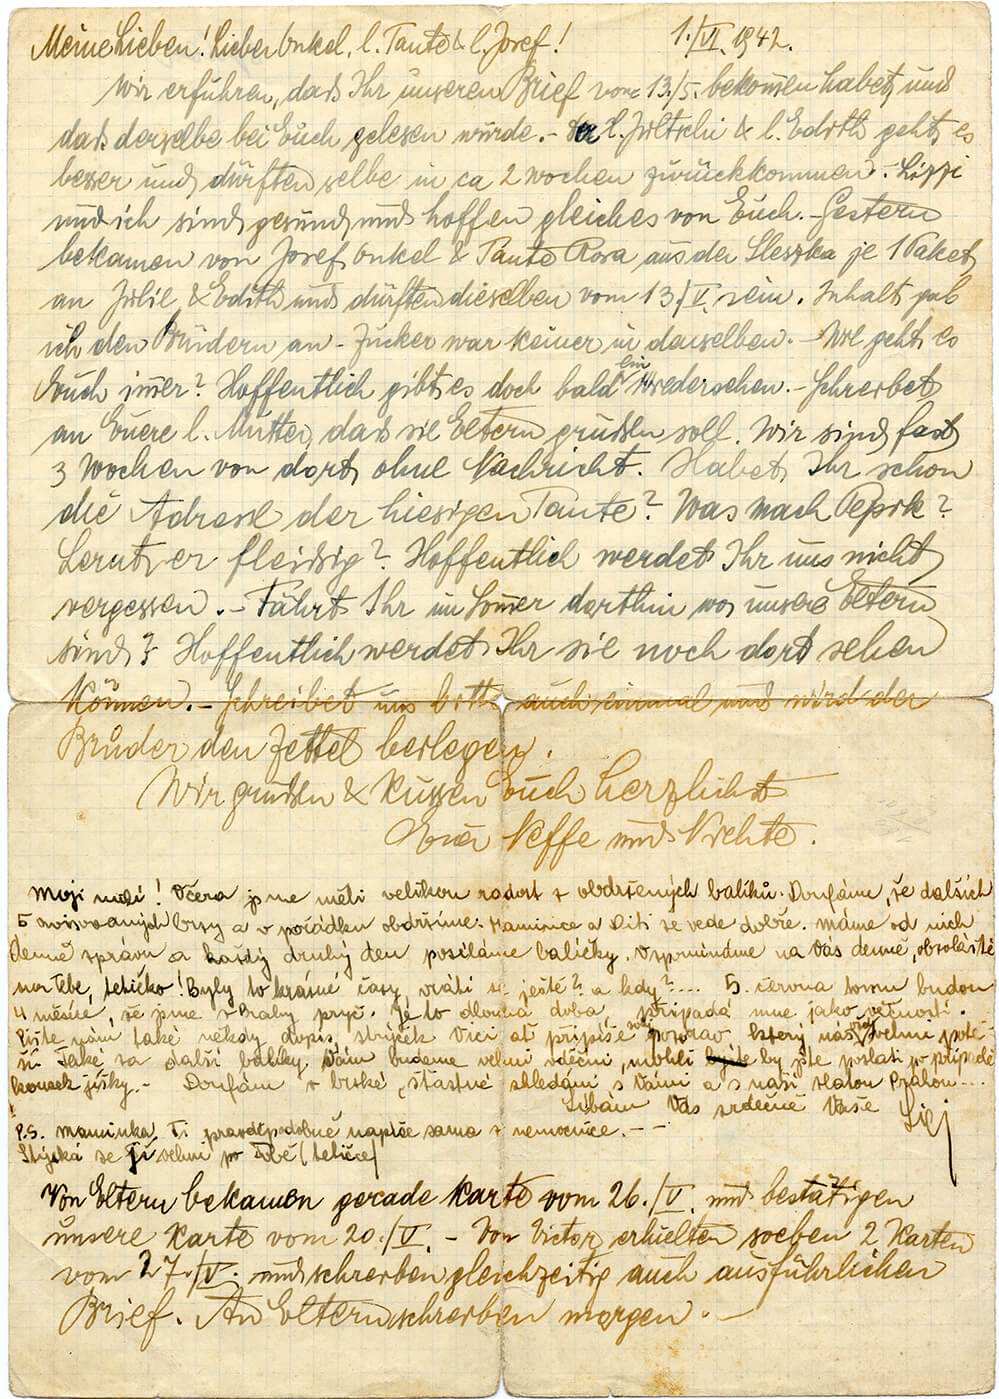 Meine Lieben! Lieber Onkel, l. Tante & l. Josef! 1./VI. 1942.
Wir erfuhren, dass Ihr unseren Brief vom 13./5. bekommen habet und
dass derselbe bei Euch gelesen wurde. - Der l. & l. Edith geht es
besser und dürften selbe in ca 2 Wochen zurückkommen. - Lizzi
und ich sind gesund und hoffen gleiches von Euch. - Gestern
bekamen von Josef, Onkel & Tante Rosa aus der Slezska je 1 Paket
an Julie & Edith und dürften dieselben vom 13./V. sein. Inhalt gab
ich den Brüdern an - Zucker war keiner in denselben. - Wie geht es
Euch immer? Hoffentlich gibt es doch bald ein Wiedersehen. - Schreibet
an Euere l. Mutter, dass sie Eltern grüssen soll. Wir sind fast
3 Wochen von dort ohne Nachricht. Habet Ihr schon
die Adresse der hiesigen Tante? Was macht Pepik?
Lernt er fleissig? Hoffentlich werdet Ihr uns nicht
vergessen. - Fährt Ihr im Sommer dorthin wo unsere Eltern
sind? Hoffentlich werdet Ihr sie noch dort sehen
können. - Schreibet uns bitte auch einmal und wird der
Bruder den Zettel beilegen.
Wir grüssen & küssen Euch herzlichst
Eure Neffe und Nichte.
Moji milí! Včera jsme měli velikou radost z obdržených balíků. Doufáme, že dalších
5 avisovaných brzy a v pořádku obdržíme. Mamince a Diti se vede dobře. Máme od nich
denně zprávu a každý druhý den posíláme balíčky. Vzpomínáme na Vás denně, obzvláště
na Tebe, tetičko! Byly to krásné časy, vrátí se ještě? a kdy?.... 5. června tomu budou
4 měsíce, že jsme z Prahy pryč. Je to dlouhá doba, připadá mně jako věčnosti.
Pište nám také někdy dopis, strýček Vici ať připíše pozdrav který nás velmi potě-
ší. Také za další balíky Vám budeme velmi vděčni, mohli by jste poslati po případě
kousek jíšky. - Doufám v brzké, šťastné shledání s Vámi a s naší zlatou Prahou...
Líbám Vás srdečně Vaše
P.S. Maminka Ti pravděpodobně napíše sama z nemocnice. - -
Stýská se jí velmi po Tobě (tetičce)
Von Eltern bekamen gerade Karte vom 26./V. und bestätigen
unsere Karte vom 20./V. - Von Victor erhielten soeben 2 Karten
vom 27./V. und schreiben gleichzeitig auch ausführlichen
Brief. An Eltern schreiben morgen. -